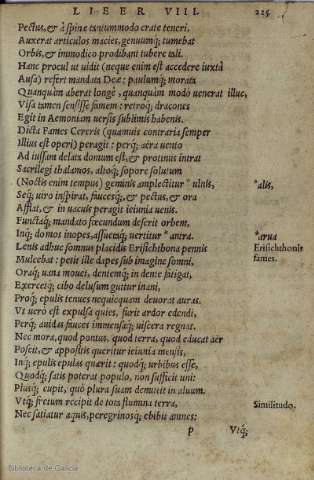 LIBER VIII. 225
Pectus, & à spinæ tantummodo crate teneri.
Auxerat articulos macies, genuumq; tumebat
Orbis, & immodico prodibant tubere tali.
Hanc procul ut uidit (neque enim est accedere iuxtà
Ausa) refert mandata Deæ: paulumq; morata
Quanquam aberat longè, quanquam modò uenerat illuc,
Visa tamen sensisse famem: retroq; dracones
Egit in Aemoniam uersis sublimis habenis.
Dicta Fames Cereris (quamuis contraria semper
Illius est operi) peragit: perq; aëra uento
Ad iussam delata domum est, & protinus intrat
Sacrilegi thalamos, altoq; sopore solutum
(Noctis enim tempus) geminis amplectitur *ulnis, *alis,
Seq; uiro inspirat, faucesq;, & pectus, & ora
Afflat, & in uacuis peragit ieiunia uenis.
Functaq; mandato fœcundum deserit orbem,
Inq; domos inopes, assuetaq; uertitur *antra. *arua
Lenis adhuc somnus placidis Erisichthona pennis Erisichthonis
Mulcebat: petit ille dapes sub imagine somni, fames.
Oraq; uana mouet, dentemq; in dente fatigat,
Exercetq; cibo delusum guttur inani,
Proq; epulis tenues nequicquam deuorat auras.
Vt uerò est expulsa quies, furit ardor edendi,
Perq; auidas fauces immensaq; uiscera regnat.
Nec mora, quod pontus, quod terra, quod educat aër
Poscit, & appositis queritur ieiunia mensis,
Inq; epulis epulas quærit: quodq; urbibus esse,
Quodq; satis poterat populo, non sufficit uni:
Plusq; cupit, quò plura suam demittit in aluum.
Vtq; fretum recipit de tota flumina terra, Similitudo.
Nec satiatur aquis, peregrinosq; ebibit amnes:
p Vtq;
Biblioteca de Galicia